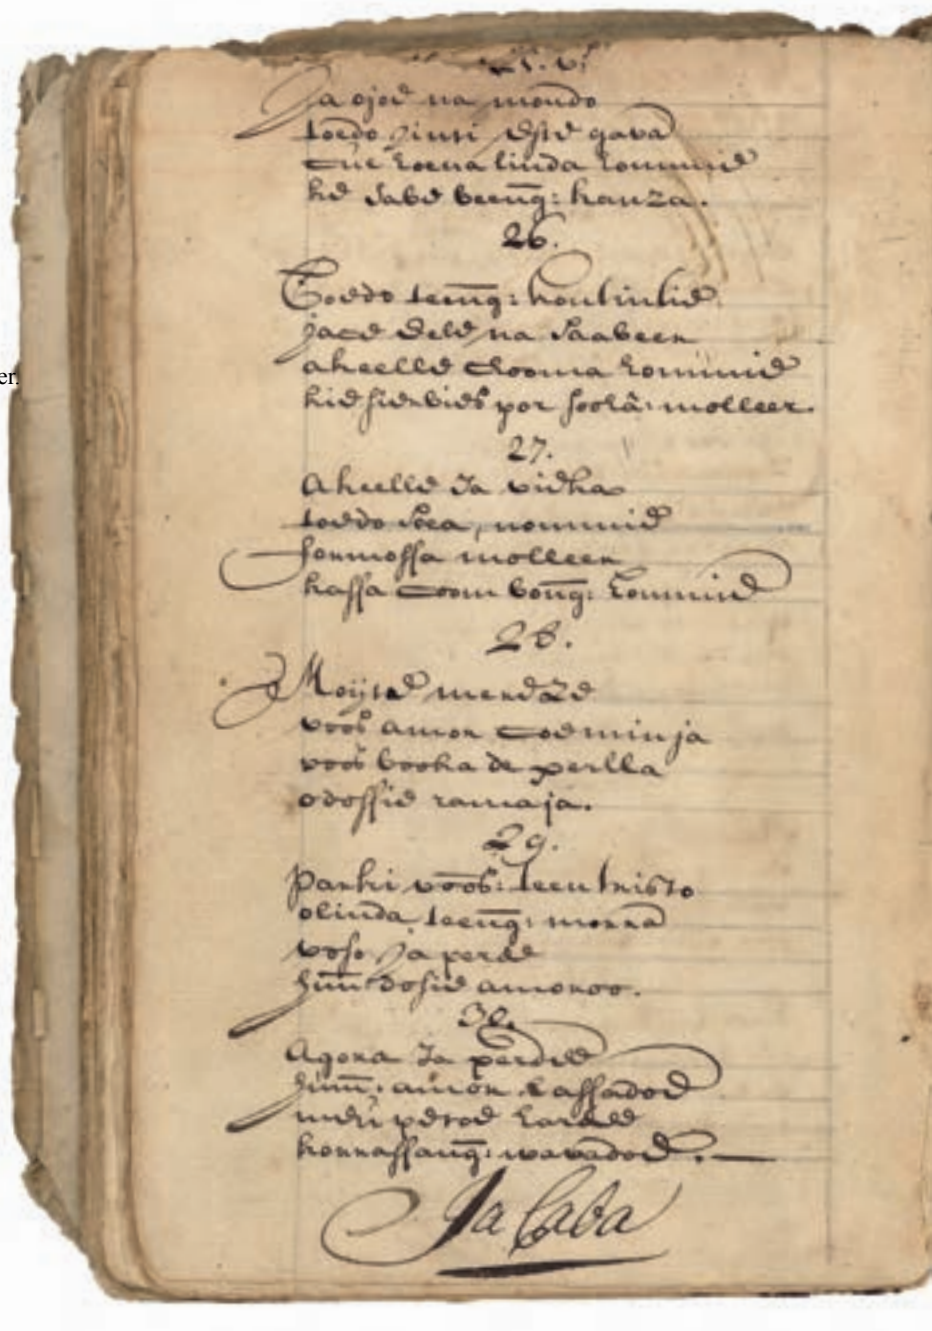 25. v.
Ja ojoe na mondo
toedo jinti este gava
cue roena linda rommie
ke save beeng: kanza.
26.
Toedo teeng: kontintie
jace dele na saaveer
akeelle clooma rommie
kie sienvies por soolā: molleer.
27.
Akeelle Ja vieha
toedo soea, nommie
formossa molleer
kassa coom bong: rommie
28.
Moijtae merdaze
voos amor coeminja
voos booka de perlla
odossie ramaja.
29.
Parki voos: teen tristo
olinda teeng: morra
voso ja perde
hum dosie amoroo.
30.
Agora Ja perdee
humm: amor cassadoe
meu petoe
korrassaung: wavadoe.
Ja Caba
er.